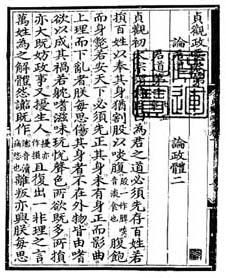 貞觀政
論 論政體二
君道
貞觀初 為君之道必須先存百姓若
損百姓以奉其身猶割股以啖腹腹飽
而身斃若安天下必須先正其身未有身正而影曲
上理而下亂者朕每思傷其身者不在外物皆由嗜
欲以成其禍若躭嗜滋味玩悅聲色所欲既多所損
亦大既妨政事又擾生人且復出一非理之言
萬姓為之解體怨讟既作離叛亦興朕每思